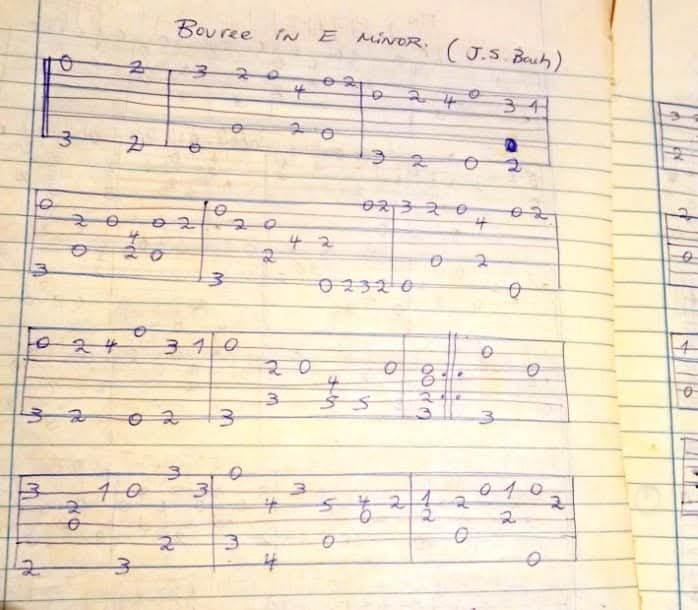 BOUREE IN E MINOR. (J.S. Bach)
0 2 3 2 0 0 2
4 0 2 4 0 3 1
0 2 0
3 2 0 3 2 0 2
0 0 0 2 3 2 0 0 2
2 0 0 2 2 0 4
4 4 2
0 2 0 2 0 2
3 3 0 2 3 2 0 0
0 2 4 0 3 1 0 0
2 0 0 0 0
4 0
3 5 5 2
3 2 0 2 3 3 3
3 0
3 1 0 3 3 0 1 0
2 4 5 4 2 1 2 2
0 0 2 2
2 3 0 0
2 3 4 0
3
2
2
0
1
0